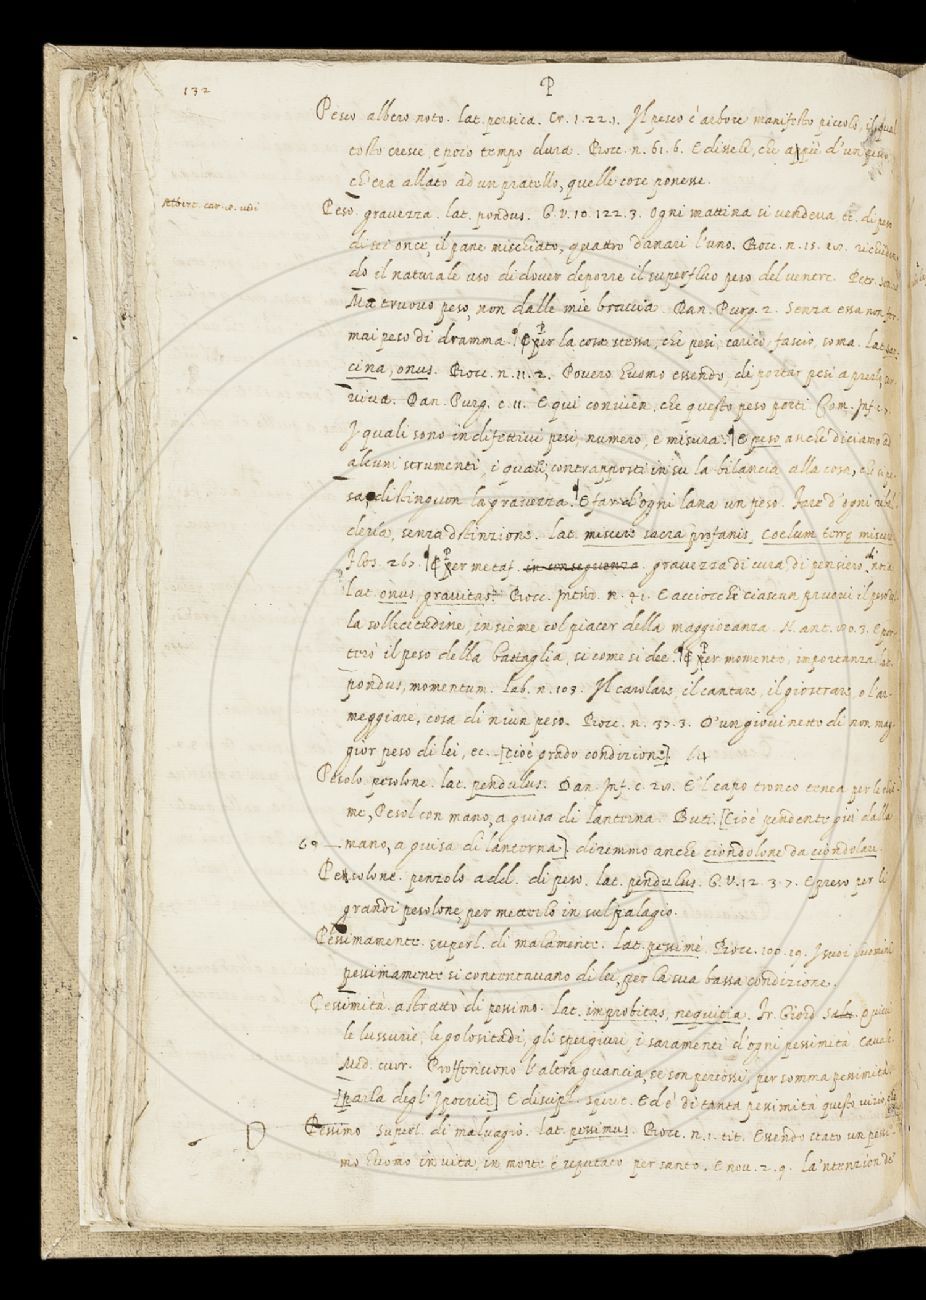 132
P
Pesco albero noto. lat. persica. Cr. 1. 22. 1. Il pesco è arbore manifesto piccolo, il qual
tosto cresce, e poco tempo dura. Bocc. n. 61. 6. E dissele, che appiè d'un pesco,
ch'era allato ad un pratello, quelle cose ponesse.
Albert. cap.
Peso gravezza. lat. pondus. G. V. 10. 122. 3. Ogni mattina si vendeva ec. di peso
di sei once, il pane mischiato, quattro danari l'uno. Bocc. n. 15. richieden
do il naturale uso di dover deporre il superfluo peso del ventre. Petr. son.
Ma truovo peso, non dalle mie braccia. Dan. Purg. 2. Senza essa non fer
mai peso di dramma. ¶ Per la cosa stessa, che pesi, carico, fascio, soma. lat. sar-
cina, onus. Bocc. n. 11. 2. Povero huomo essendo, di portar pesi a prezzo, ser
viva. Dan. Purg. c. 11. E qui convien, che questo peso porti Com. Inf. 7.
I quali sono in difettivi pesi, numero, e misura. ¶ E peso anche diciamo ad
alcuni strumenti, i quali, contrapposti in su la bilancia alla cosa, che si pe-
sa, distinguon la gravezza. ¶ E far d'ogni lana un peso. Fare d'ogni ribal
deria, senza distinzione. lat. miscere sacra profanis, coelum terrę miscere
Flos. 267. ¶ Per metaf. in conseguenza gravezza di cura, di pensiero, di noia
lat. onus, gravitas. Bocc. Intro. n. 41. E acciocchè ciascun pruovi il peso del
la sollecitudine, insieme col piacer della maggioranza. N. ant. 80. 3. E por-
terò il peso della battaglia, si come si dee. ¶ Per momento, importanza. lat.
pondus, momentum. Lab. n. 103. Il carolare il cantare, il giostrare, o l'ar-
meggiare, cosa di niun peso. Bocc. n. 37. 3. D'un giovinetto di non mag-
gior peso di lei, ec. [cioè grado condizione] 64
Pesolo. pesolone. lat. pendulus. Dan. Inf. c. 28. E 'l capo tronco tenea per le chio-
me, Pesol con mano, a guisa di lanterna. Buti. [Cioè pendente giù dalla
69 — mano, a guisa di lanterna] diremmo anche ciondolone da ciondolare.
Pesolone. penzolo add. di peso. lat. pendulus. G. V. 12. 3. 7. E preso per li
grandi pesolone, per metterlo in sul palagio.
Pessimamente. superl. di malamente. lat. pessimè. Bocc. 100. 10. I suoi huomini
pessimamente si contentavano di lei, per la sua bassa condizione.
Pessimità. astratto di pessimo. lat. improbitas, nequitia. Fr. Giord. Salv. Quivi
le lussurie, le golositadi, gli spergiuri, i saramenti d'ogni pessimità. Cavalc.
Med. cuor. Profferiscono l'altra guancia, se son percossi, per somma pessimità
[parla degl'Ipocriti] E discipl. spirit. Ed è di tanta pessimità questo vizio, che
Pessimo superl. di malvagio. lat. pessimus. Bocc. n. 1. tit. Essendo stato un pessi-
mo huomo in vita, in morte è reputato per santo. E nov. 2. 9. La 'ntenzion de'